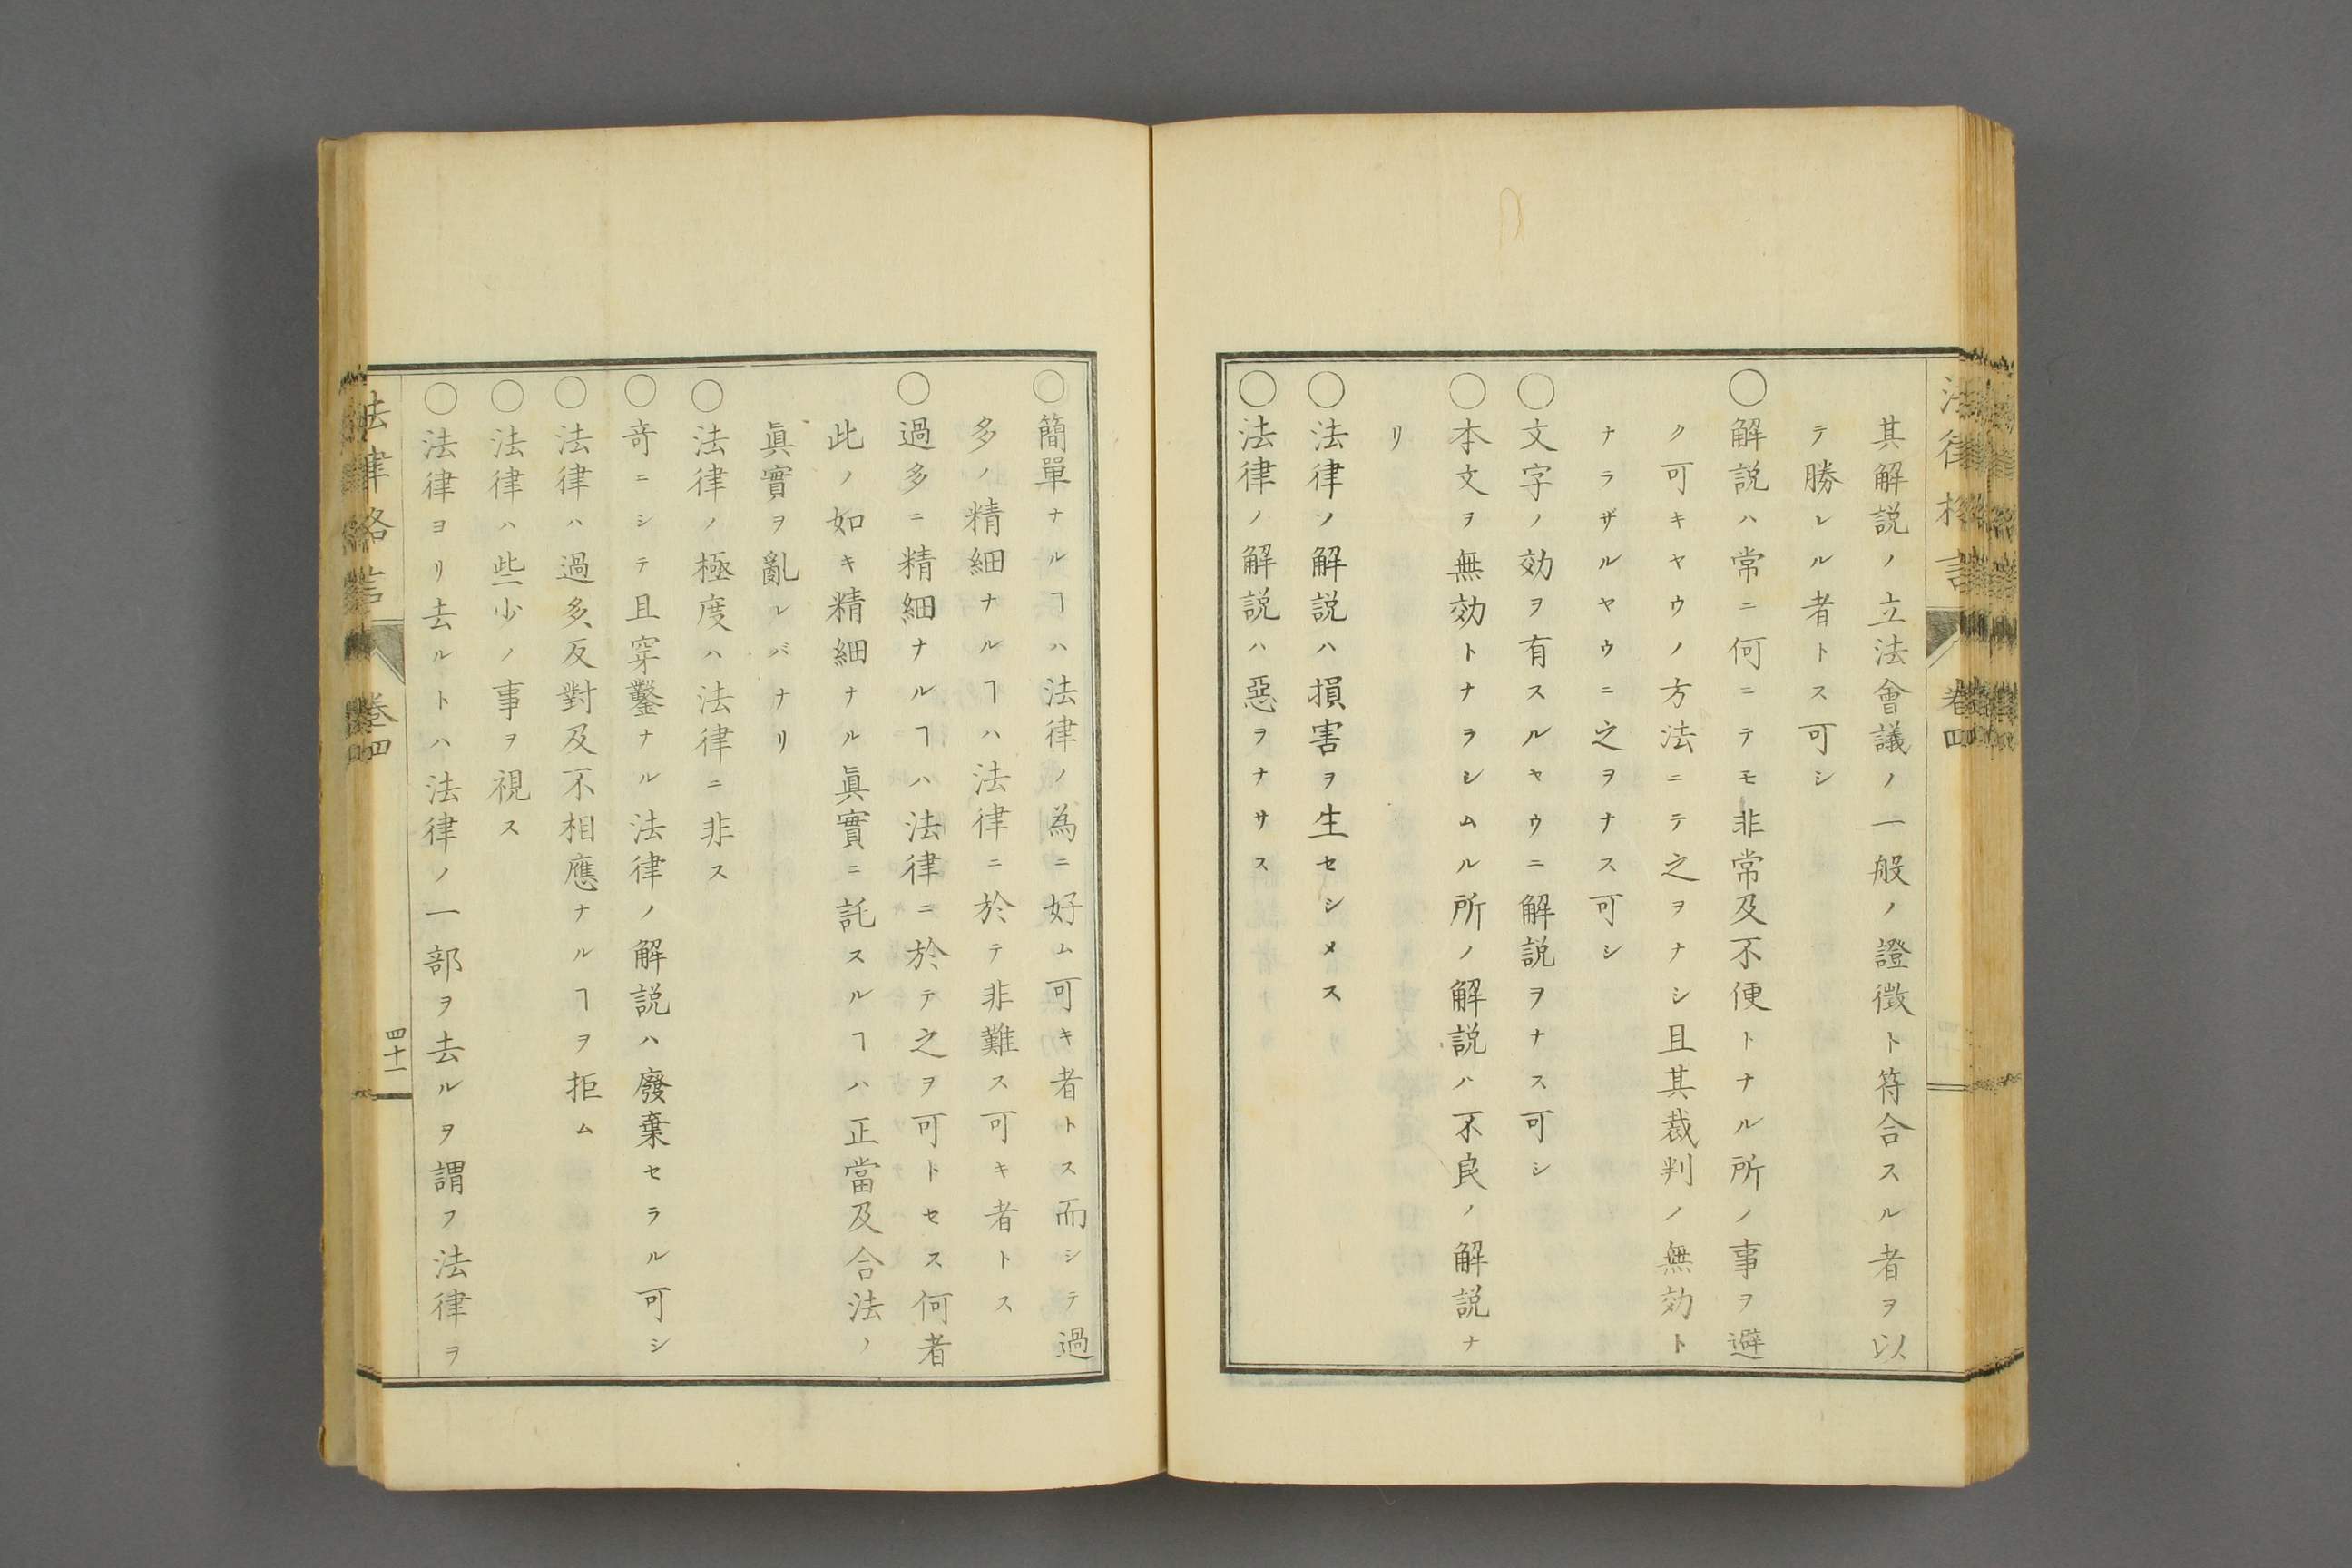 其解説ノ立法會議ノ一般ノ證徴ト符合スル者ヲ以
テ勝レル者トス可シ
〇解説ハ常ニ何ニテモ非常及不便トナル所ノ事ヲ避
ク可キヤウノ方法ニテ之ヲナシ且其裁判ノ無効ト
ナラザルヤウニ之ヲナス可シ
〇文字ノ効ヲ有スルヤウニ解説ヲナス可シ
〇本文ヲ無効トナラシムル所ノ解説ハ不良ノ解説ナ
リ
〇法律ノ解説ハ損害ヲ生セシメス
〇法律ノ解説ハ惡ヲナサス
〇簡單ナルヿハ法律ノ為ニ好ム可キ者トス而シテ過
多ノ精細ナルヿハ法律ニ於テ非難ス可キ者トス
〇過多ニ精細ナルヿハ法律ニ於テ之ヲ可トセス何者
此ノ如キ精細ナル眞實ニ託スルヿハ正當及合法ノ
眞實ヲ亂レバナリ
〇法律ノ極度ハ法律ニ非ス
〇竒ニシテ且穿鑿ナル法律ノ解説ハ廢棄セラル可シ
〇法律ハ過多反對及不相應ナルヿヲ拒ム
〇法律ハ些少ノ事ヲ視ス
〇法律ヨリ去ルトハ法律ノ一部ヲ去ルヲ謂フ法律ヲ
法律格言 卷四 四十一